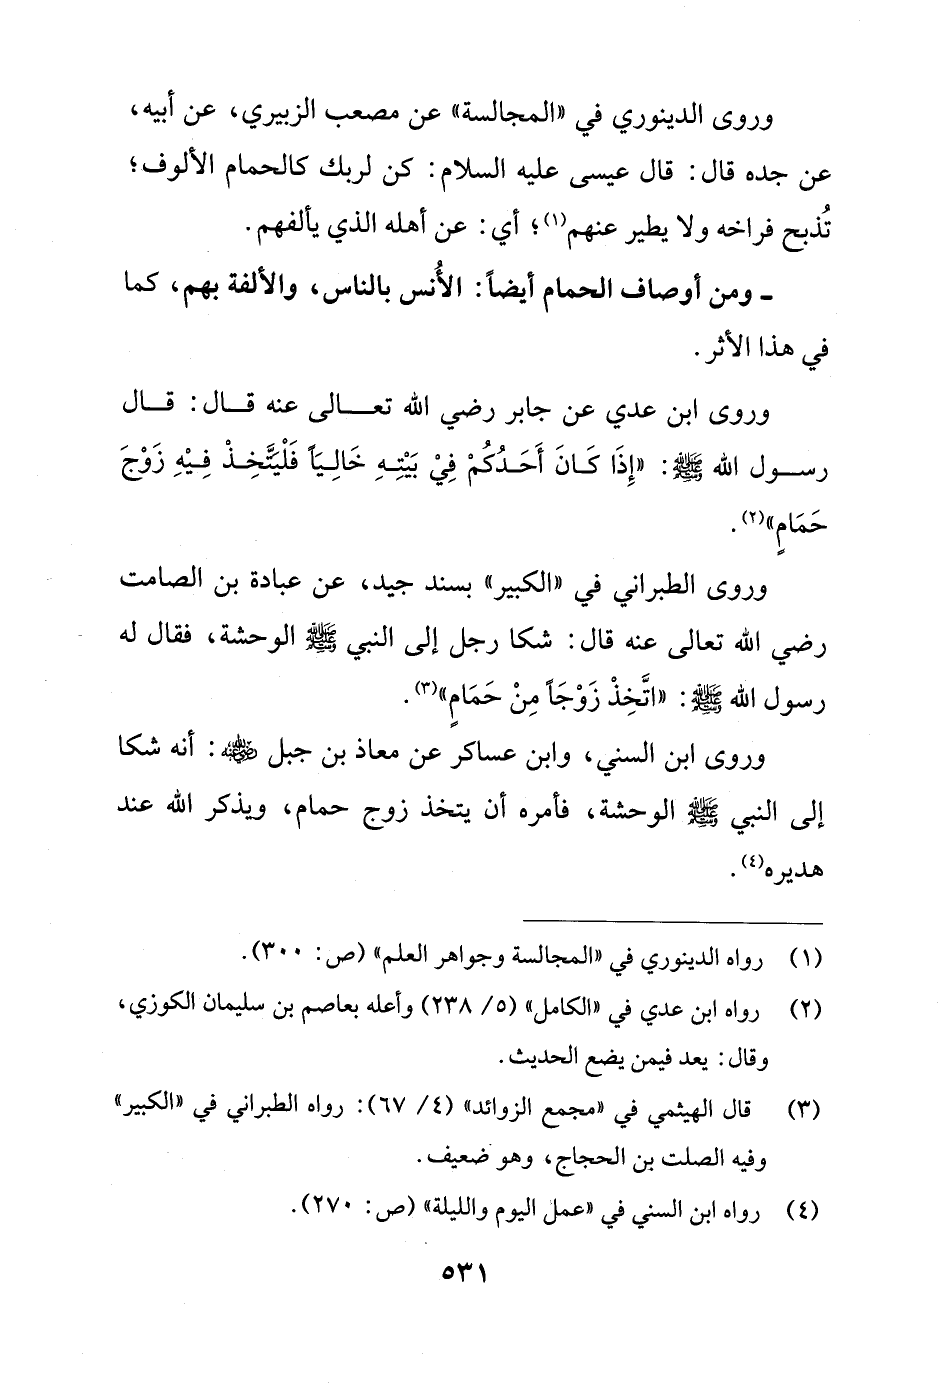 وروى الدينوري في «المجالسة» عن مصعب الزبيري، عن أبيه،
عن جده قال: قال عيسى عليه السلام: كن لربك كالحمام الألوف؛
تُذبح فراخه ولا يطير عنهم(١)؛ أي: عن أهله الذي يألفهم.
ـ ومن أوصاف الحمام أيضاً: الأُنس بالناس، والألفة بهم، كما
في هذا الأثر.
وروى ابن عدي عن جابر رضي الله تعـــالى عنه قـــال: قـــال
رســـول الله ﷺ: «إِذَا كَـانَ أَحَـدُكُمْ فِيْ بَيْتِـهِ خَالِيَـاً فَلْيَتَّخِـذْ فِيْـهِ زَوْجَ
حَمَامٍ»(٢).
وروى الطبراني في «الكبير» بسند جيد، عن عبادة بن الصامت
رضي الله تعالى عنه قال: شكا رجل إلى النبي ﷺ الوحشة، فقال له
رسول الله ﷺ: «اتَّخِذْ زَوْجَاً مِنْ حَمَامٍ»(٣).
وروى ابن السني، وابن عساكر عن معاذ بن جبل رضي الله عنه: أنه شكا
إلى النبي ﷺ الوحشة، فأمره أن يتخذ زوج حمام، ويذكر الله عند
هديره(٤).
(١) رواه الدينوري في «المجالسة وجواهر العلم» (ص: ٣٠٠).
(٢) رواه ابن عدي في «الكامل» (٥/ ٢٣٨) وأعله بعاصم بن سليمان الكوزي،
وقال: يعد فيمن يضع الحديث.
(٣) قال الهيثمي في «مجمع الزوائد» (٤/ ٦٧): رواه الطبراني في «الكبير»
وفيه الصلت بن الحجاج، وهو ضعيف.
(٤) رواه ابن السني في «عمل اليوم والليلة» (ص: ٢٧٠).
٥٣١